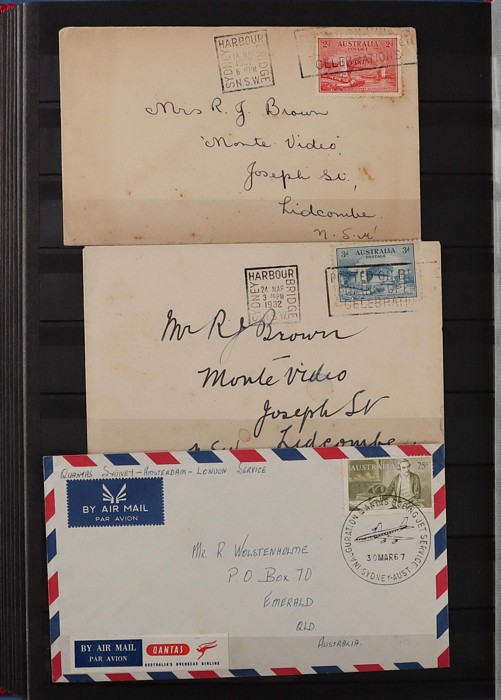 HARBOUR
SYDNEY
BRIDGE
N.S.W.
2D 2D
AUSTRALIA
CELEBRATIONS
Mrs R. J. Brown
'Monte Video'
Joseph St,
Lidcombe.
N.S.W
HARBOUR
SYDNEY
BRIDGE
24 MAR
1932
3D 3D
AUSTRALIA
POSTAGE
POSTED ON
CELEBRATI
Mr R J Brown
Monte Video
Joseph St
N.S.W Lidcombe
QUANTAS SYDNEY-AMSTERDAM-LONDON SERVICE
BY AIR MAIL
PAR AVION
AUSTRALIA 75c
INAUGURATION QANTAS BOEING JET SERVICE
30 MAR 67
SYDNEY-AUST.
MR. R WOLSTENHOLME
P O BOX 70
EMERALD
QLD.
AUSTRALIA.
BY AIR MAIL
PAR AVION
QANTAS
AUSTRALIA'S OVERSEAS AIRLINE